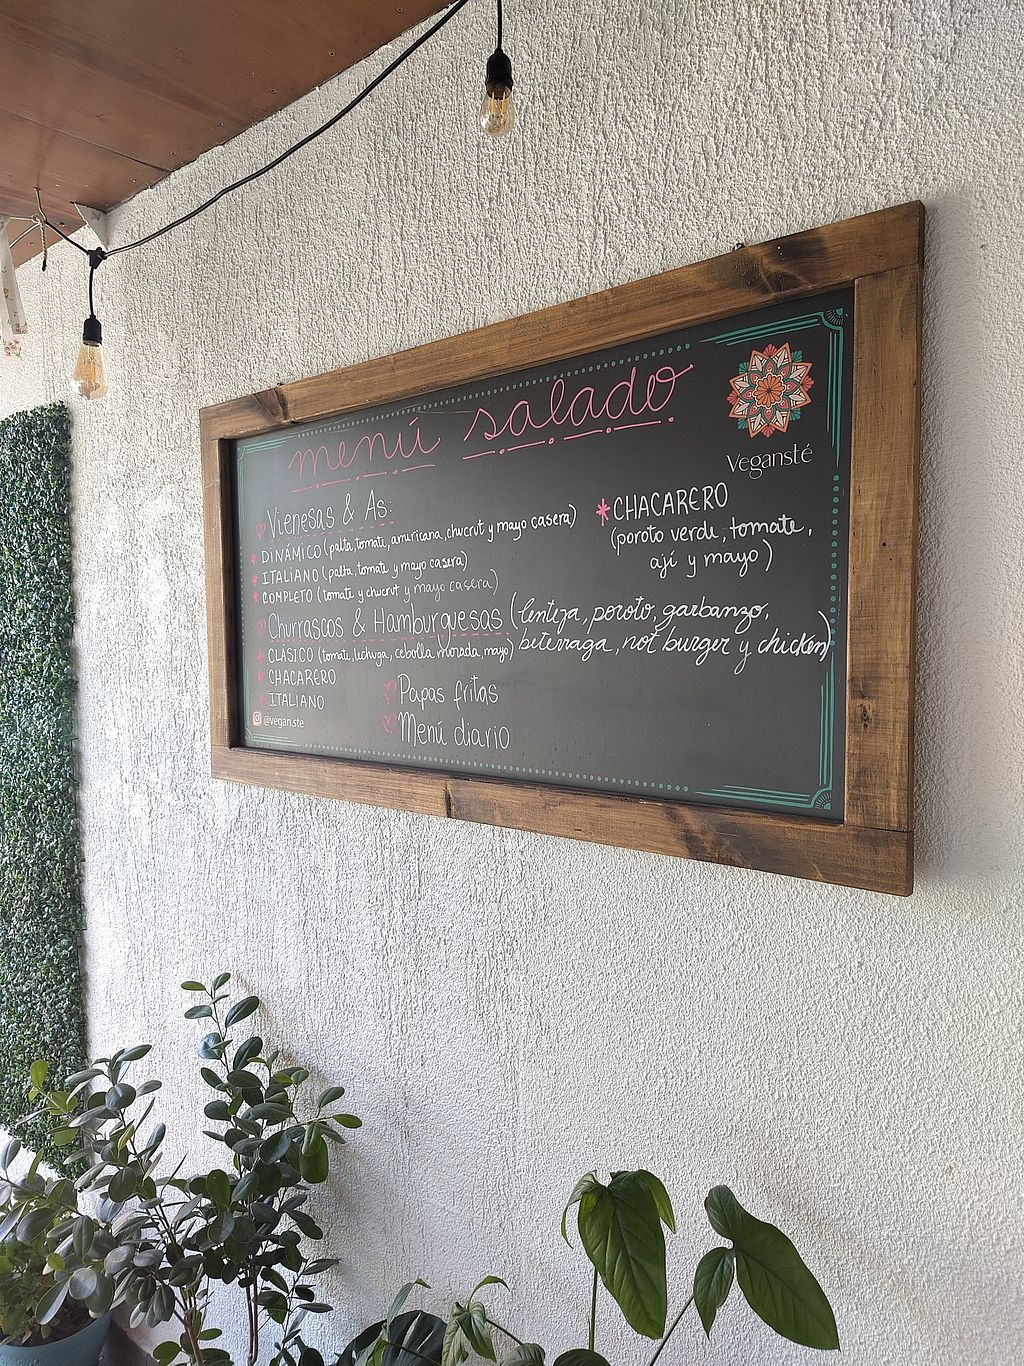 menú salado
Vegansté
Vienesas & As:
* DINÁMICO (palta, tomate, americana, chucrut y mayo casera)
* ITALIANO (palta, tomate y mayo casera)
* COMPLETO (tomate y chucrut y mayo casera)
* CHACARERO
(poroto verde, tomate,
ají y mayo)
Churrascos & Hamburguesas (lenteja, poroto, garbanzo,
beterraga, not burger y chicken)
* CLÁSICO (tomate, lechuga, cebolla morada, mayo)
* CHACARERO
* ITALIANO
Papas fritas
Menú diario
@vegan.ste